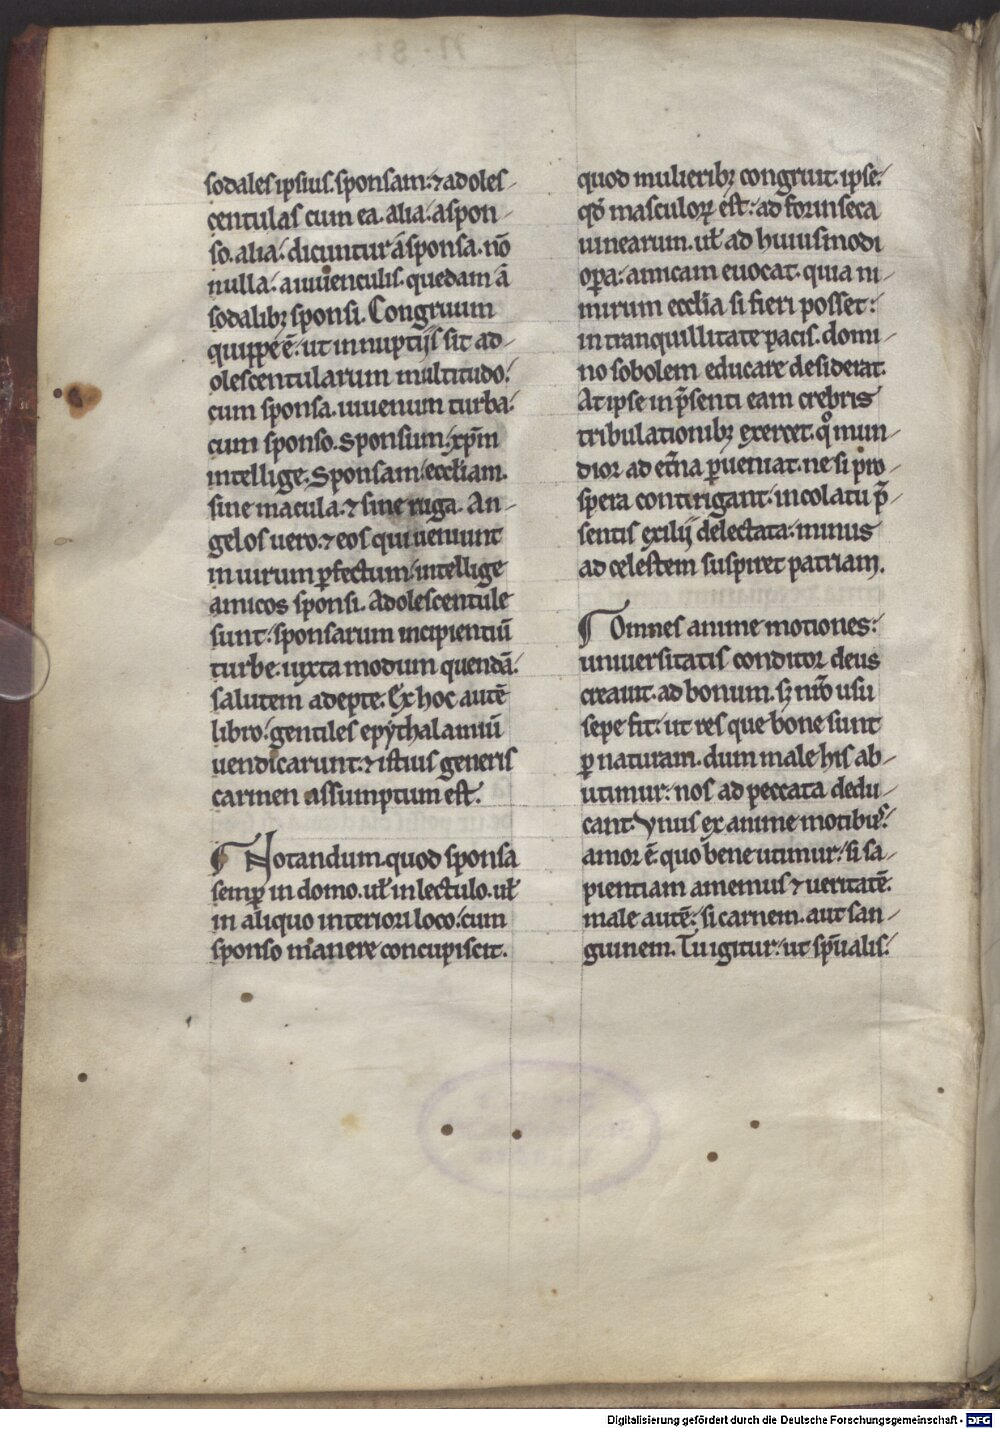 sodales ipsius. sponsam:⁊ adoles-
centulas cum ea. alia: a spon-
so. alia: dicuntur a sponsa. nō
nulla: a iuuenculis. quedam a
sodalibꝫ sponsi. Congruum
quippe ē: ut in nuptijs sit ad-
olescentularum multitudo:
cum sponsa. iuuenum turba:
cum sponso. Sponsum: xp̄m
intellige. Sponsam: eccl̄iam.
sine macula. ⁊ sine ruga. An-
gelos uero: ⁊ eos qui ueniunt
in uirum ꝑfectum: intellige
amicos sponsi. Adolescentule
sunt: sponsarum incipientiū
turbe. iuxta modum quendā:
salutem adepte. Ex hoc autē
libro: gentiles epythalamiū
uendicarunt: ⁊ istius generis
carmen assumptum est.
¶ Notandum. quod sponsa
semꝑ in domo. uł in lectulo. uł
in aliquo interiori loco: cum
sponso manere concupiscit.
quod mulieribꝫ congruit. ipse:
qđ masculoꝝ est: ad forinseca
uinearum. uł ad huiusmodi
oꝑa: amicam euocat. quia ni-
mirum eccl̄ia si fieri posset:
in tranquillitate pacis. domi-
no sobolem educare desiderat.
At ipse in p̄senti eam crebris
tribulationibꝫ exercet. qͦ mun-
dior ad et̄na ꝑueniat. ne si pro-
spera contingant: incolatu p̄-
sentis exilij delectata: minus
ad celestem suspiret patriam.
¶ Omnes anime motiones:
uniuersitatis conditor deus
creauit. ad bonum. sꝫ nr̄o usu
sepe fit: ut res que bone sunt
ꝑ naturam. dum male his ab-
utimur: nos ad peccata dedu-
cant. Vnus ex anime motibus:
amor ē. quo bene utimur: si sa-
pientiam amemus ⁊ ueritatē.
male autē: si carnem. aut san-
guinem. Tu igitur: ut sp̄ualis:
Digitalisierung gefördert durch die Deutsche Forschungsgemeinschaft - DFG